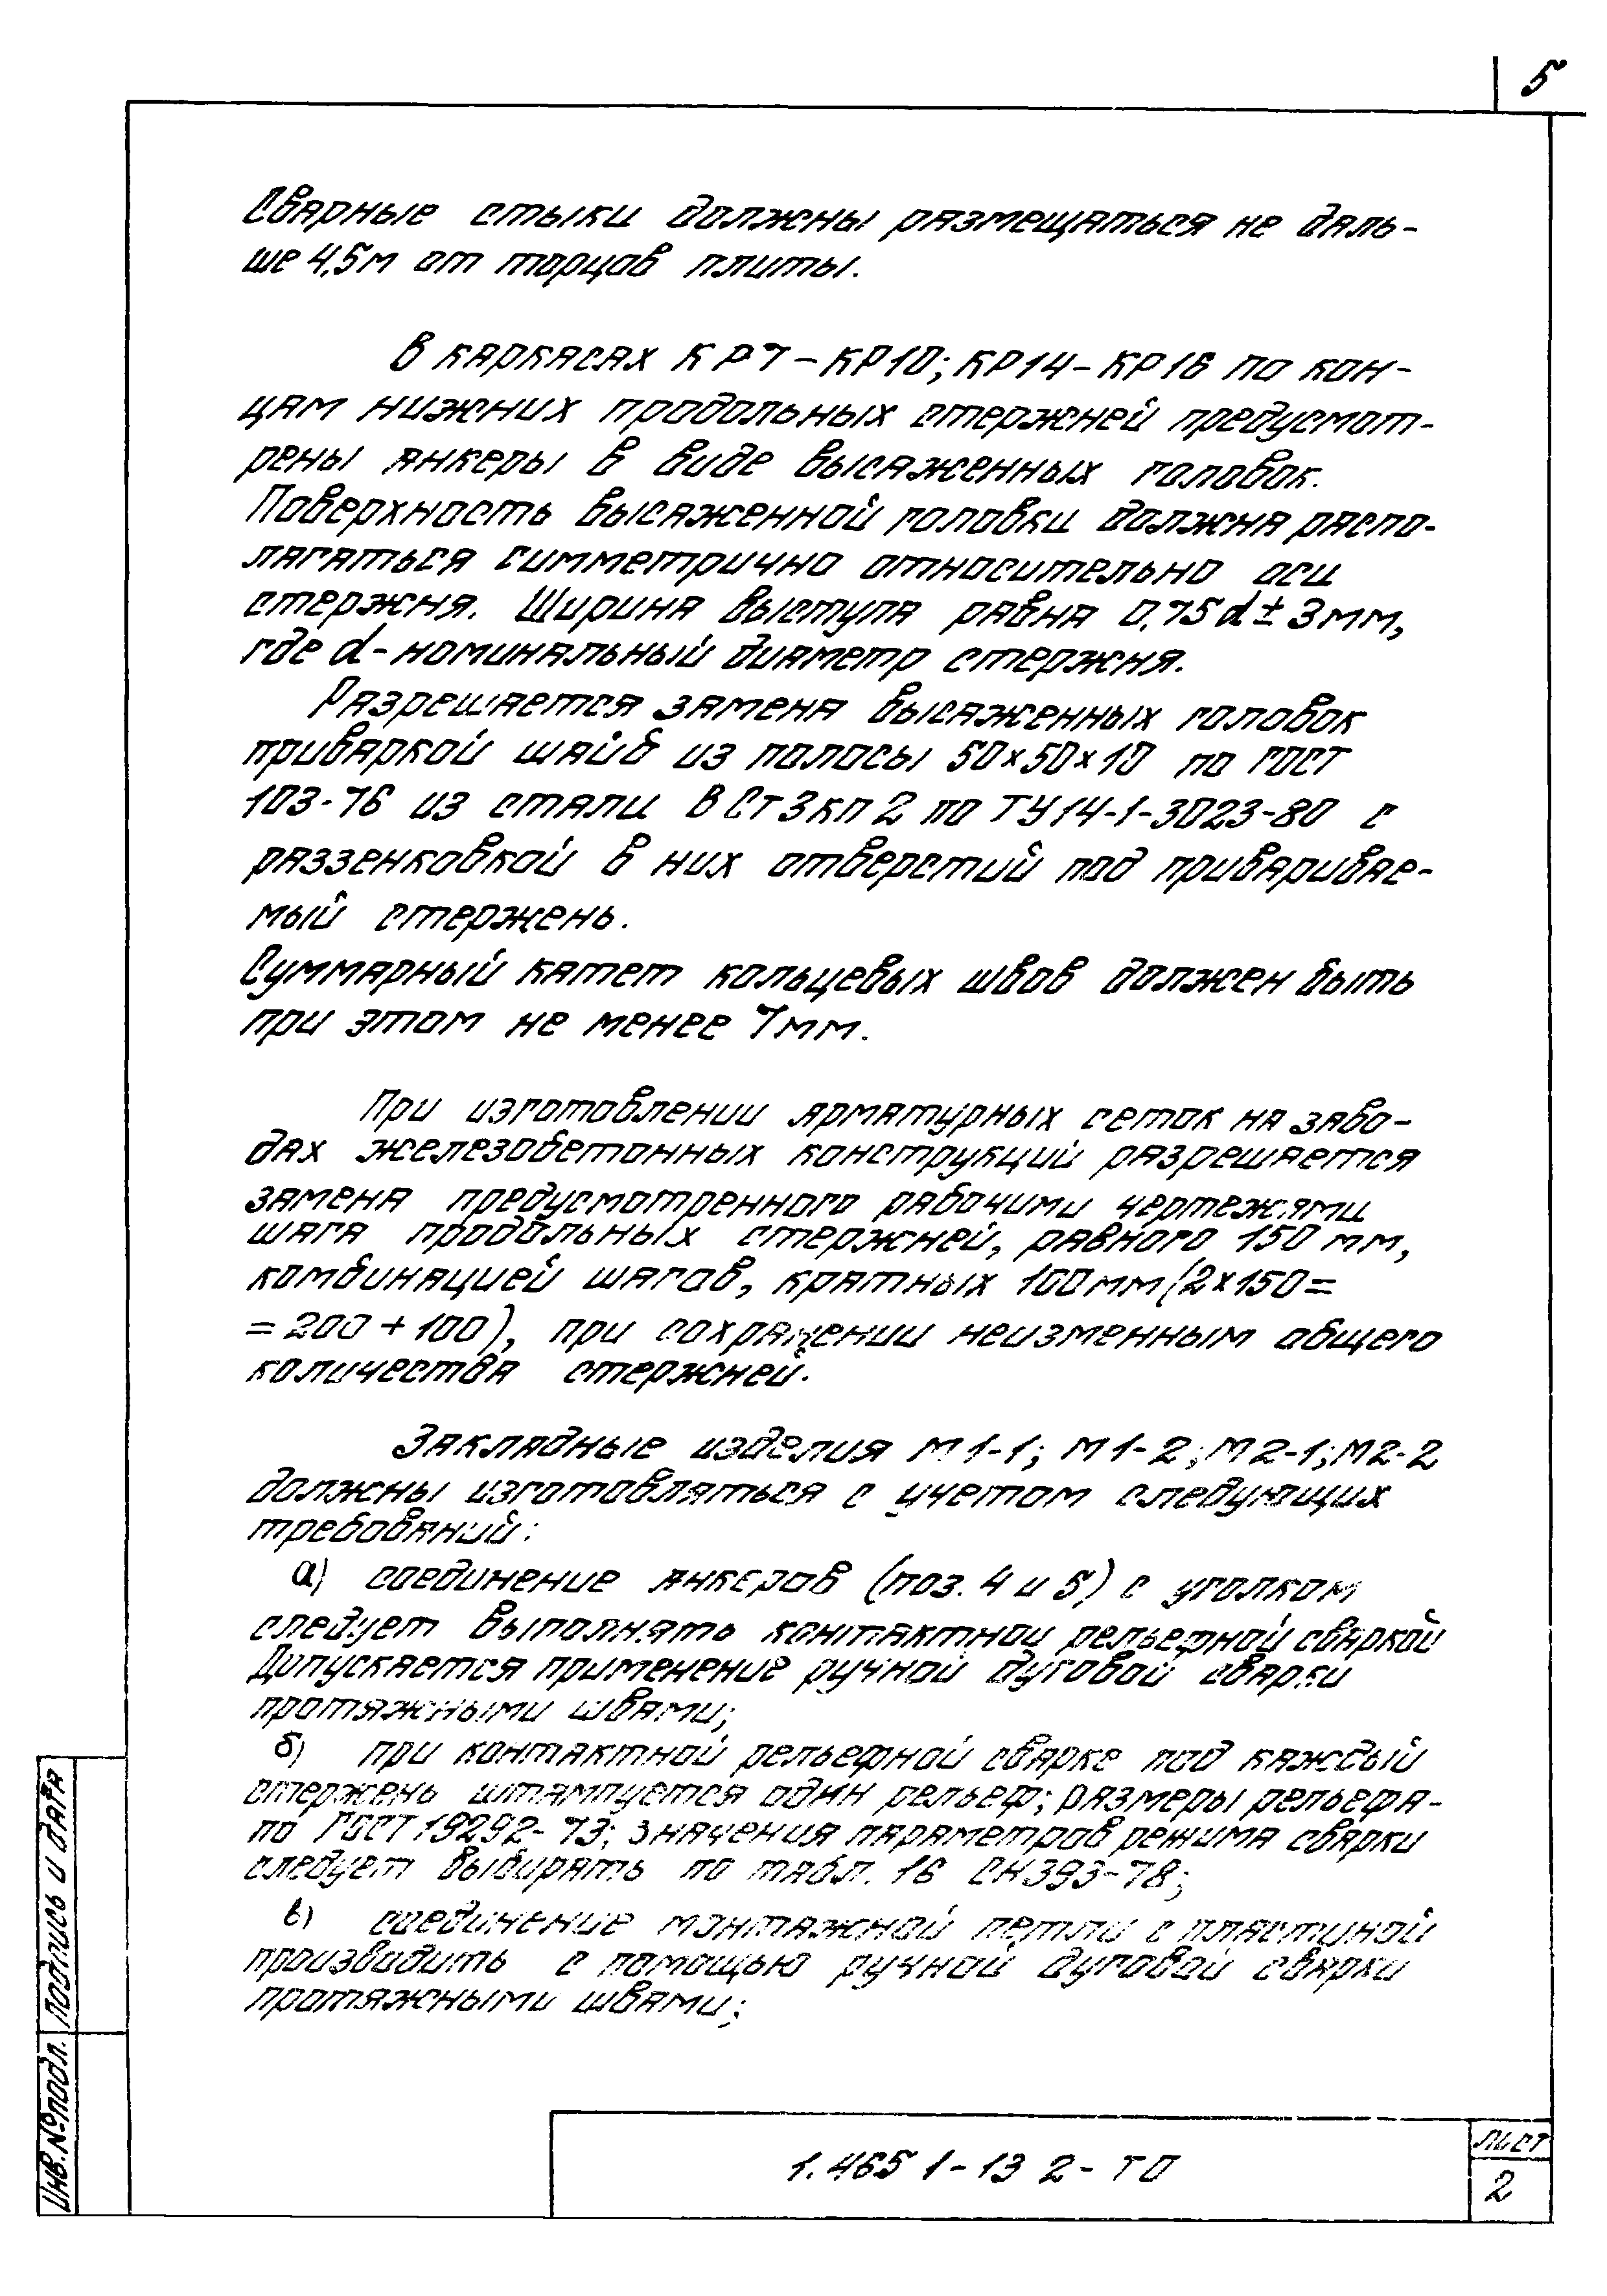 5
Сварные стыки должны размещаться не даль-
ше 4,5м от торцов плиты.
В каркасах КР7-КР10; КР14-КР16 по кон-
цам нижних продольных стержней предусмот-
рены анкеры в виде высаженных головок.
Поверхность высаженной головки должна распо-
лагаться симметрично относительно оси
стержня. Ширина выступа равна 0,75d±3мм,
где d-номинальный диаметр стержня.
Разрешается замена высаженных головок
приваркой шайб из полосы 50×50×10 по ГОСТ
103-76 из стали ВСт3кп2 по ТУ14-1-3023-80 с
раззенковкой в них отверстий под приваривае-
мый стержень.
Суммарный катет кольцевых швов должен быть
при этом не менее 7мм.
При изготовлении арматурных сеток на заво-
дах железобетонных конструкций разрешается
замена предусмотренного рабочими чертежами
шага продольных стержней, равного 150 мм,
комбинацией шагов, кратных 100мм (2×150=
=200+100), при сохранении неизменным общего
количества стержней.
Закладные изделия М1-1; М1-2; М2-1; М2-2
должны изготовляться с учетом следующих
требований:
а) соединение анкеров (поз. 4 и 5) с уголком
следует выполнять контактной рельефной сваркой
Допускается применение ручной дуговой сварки
протяжными швами;
б) при контактной рельефной сварке под каждый
стержень штампуется один рельеф; размеры рельефа-
по ГОСТ 19292-73; значения параметров режима сварки
следует выбирать по табл. 16 СН393-78;
в) соединение монтажной петли с пластиной
производить с помощью ручной дуговой сварки
протяжными швами;
Инв.№подл. Подпись и дата
1.465 1-13 2-ТО
Лист
2